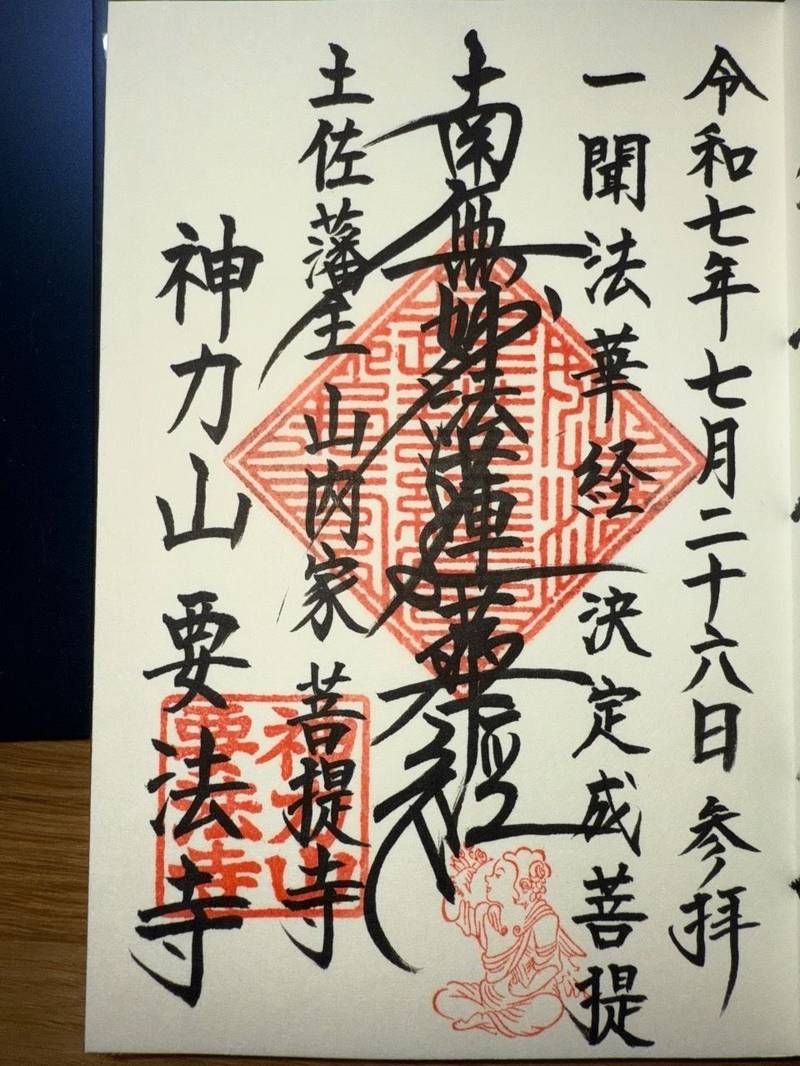 令和七年七月二十六日 参拝
一聞法華経 決定成菩提
南無妙法蓮華経
土佐藩主 山内家 菩提寺
神力山 要法寺
神力山
要法寺